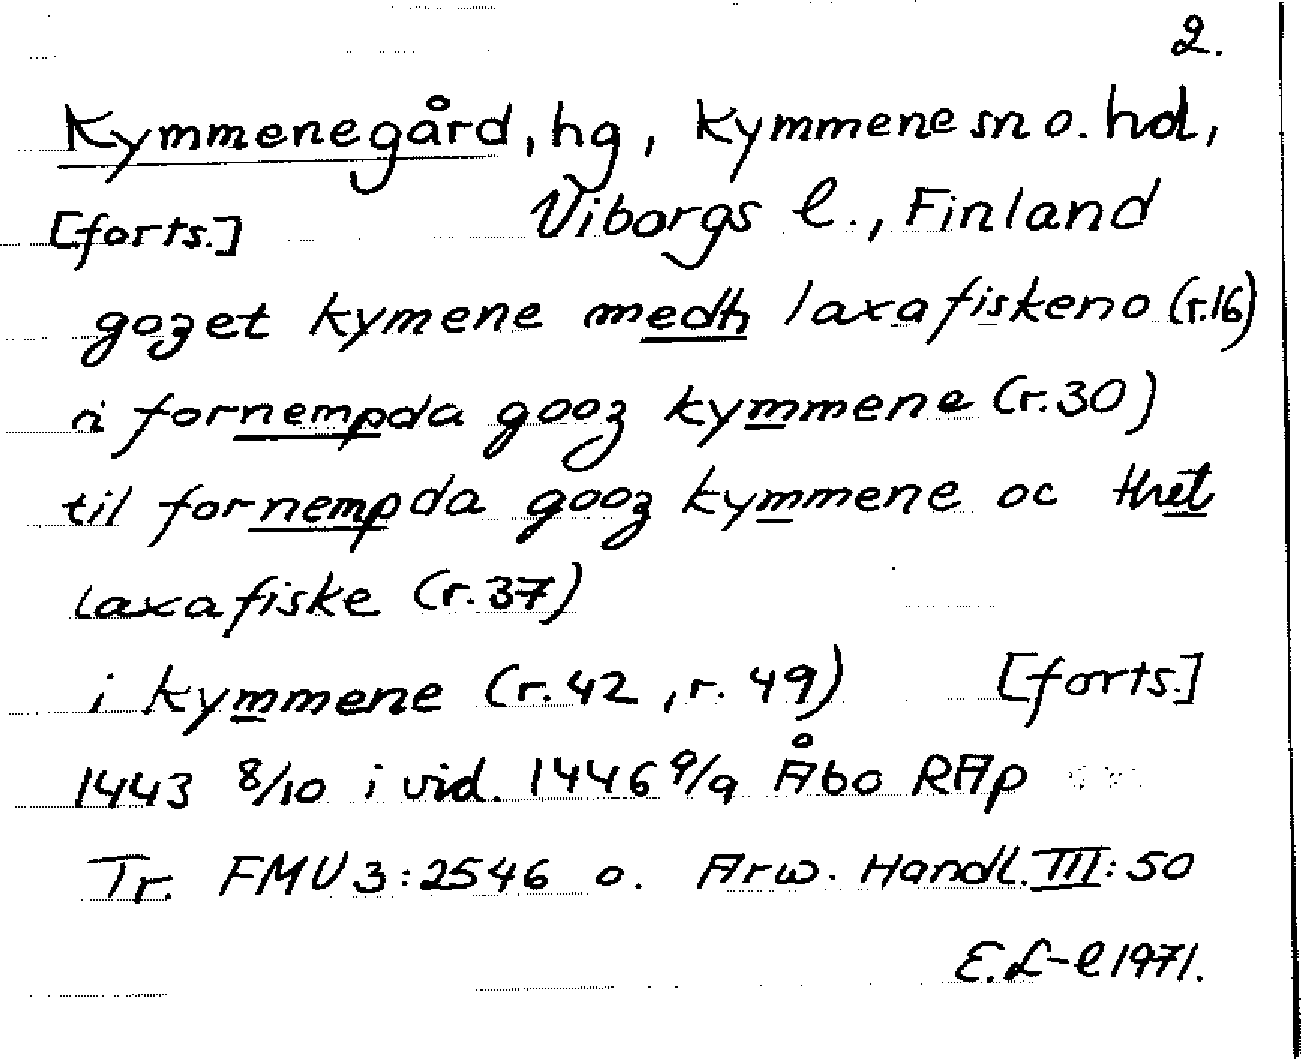 2.
Kymmenegård, hg, Kymmene sn o. hd,
[forts.] Viborgs l., Finland
gozet kymene medh laxafiskeno (r.16)
i fornempda gooz kymmene (r.30)
til fornempda gooz kymmene oc thet
laxafiske (r.37)
i kymmene (r.42, r. 49) [forts.]
1443 8/10 i vid. 1446 9/9 Åbo RAp
Tr. FMU 3:2546 o. Arw. Handl. III:50
E.L-l 1971.